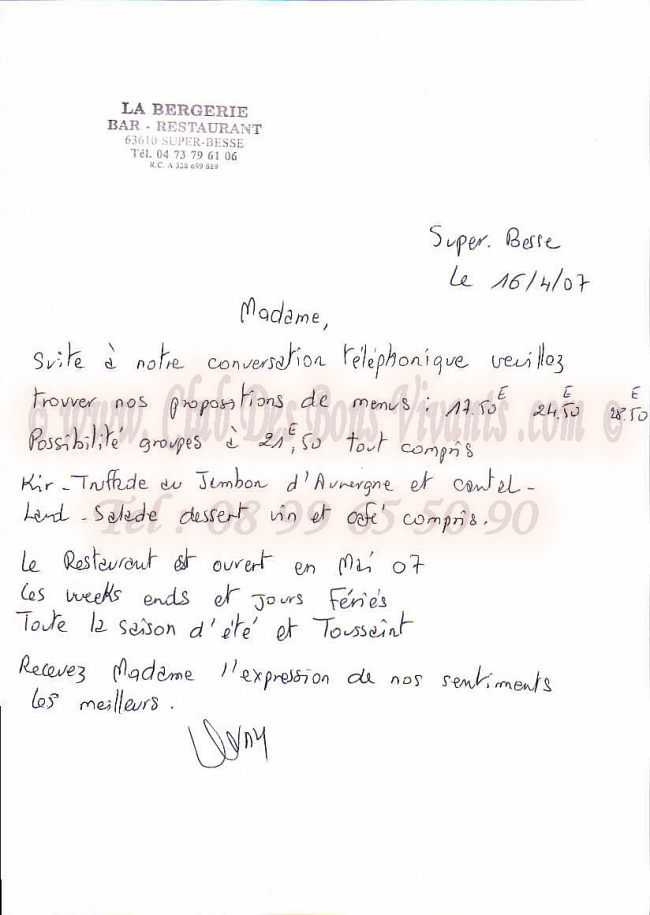 LA BERGERIE
BAR - RESTAURANT
63610 SUPER-BESSE
Tél. 04 73 79 61 06
R.C. A 328 699 819
Super. Besse
Le 16/4/07
Madame,
Suite à notre conversation téléphonique veuillez
trouver nos propositions de menus : 17.50€ 24,50€ 28.50€
© www.ClubDesBonsVivants.com ©
Possibilité groupes à 21€,50 tout compris
Kir - Truffade au Jambon d'Auvergne et cantal -
Tél : 08 99 65 50 90
Lard - Salade dessert vin et café compris.
Le Restaurant est ouvert en Mai 07
Les weeks ends et jours Fériés
Toute la saison d'été et Toussaint
Recevez Madame l'expression de nos sentiments
les meilleurs.